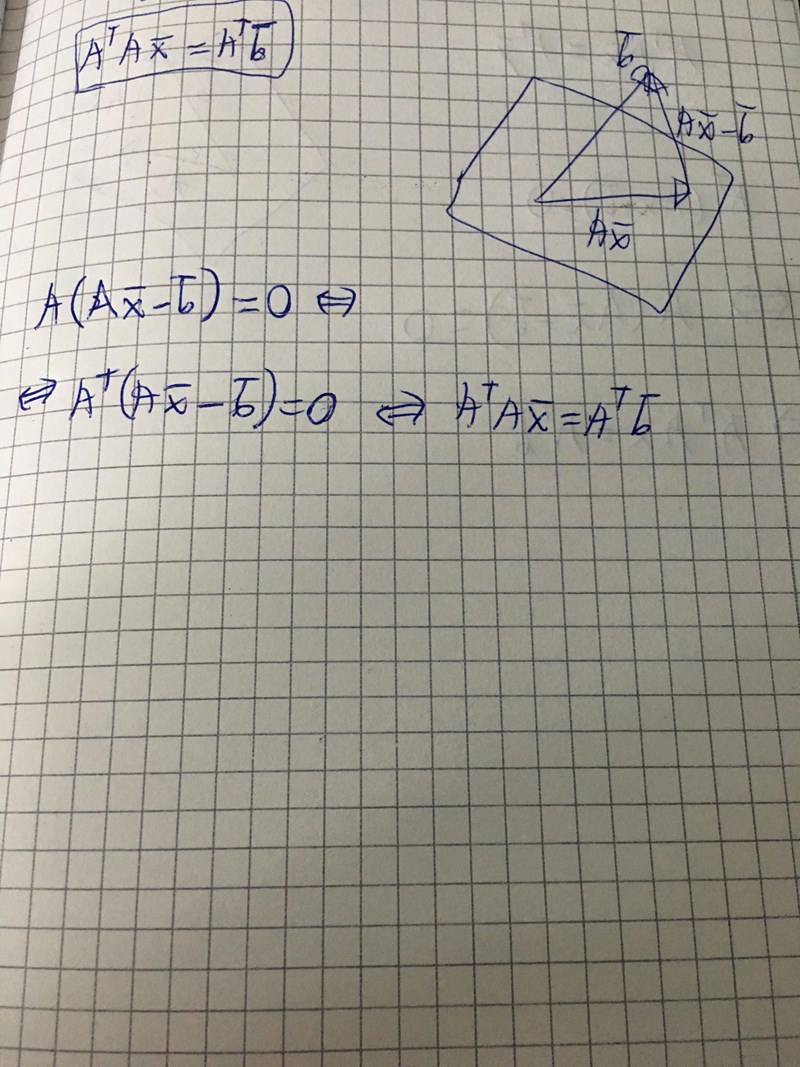 AᵀAx̄ = Aᵀb̄
b̄
Ax̄-b̄
Ax̄
A(Ax̄-b̄) = 0 ⇔
⇔ Aᵀ(Ax̄-b̄)=0 ⇔ AᵀAx̄=Aᵀb̄